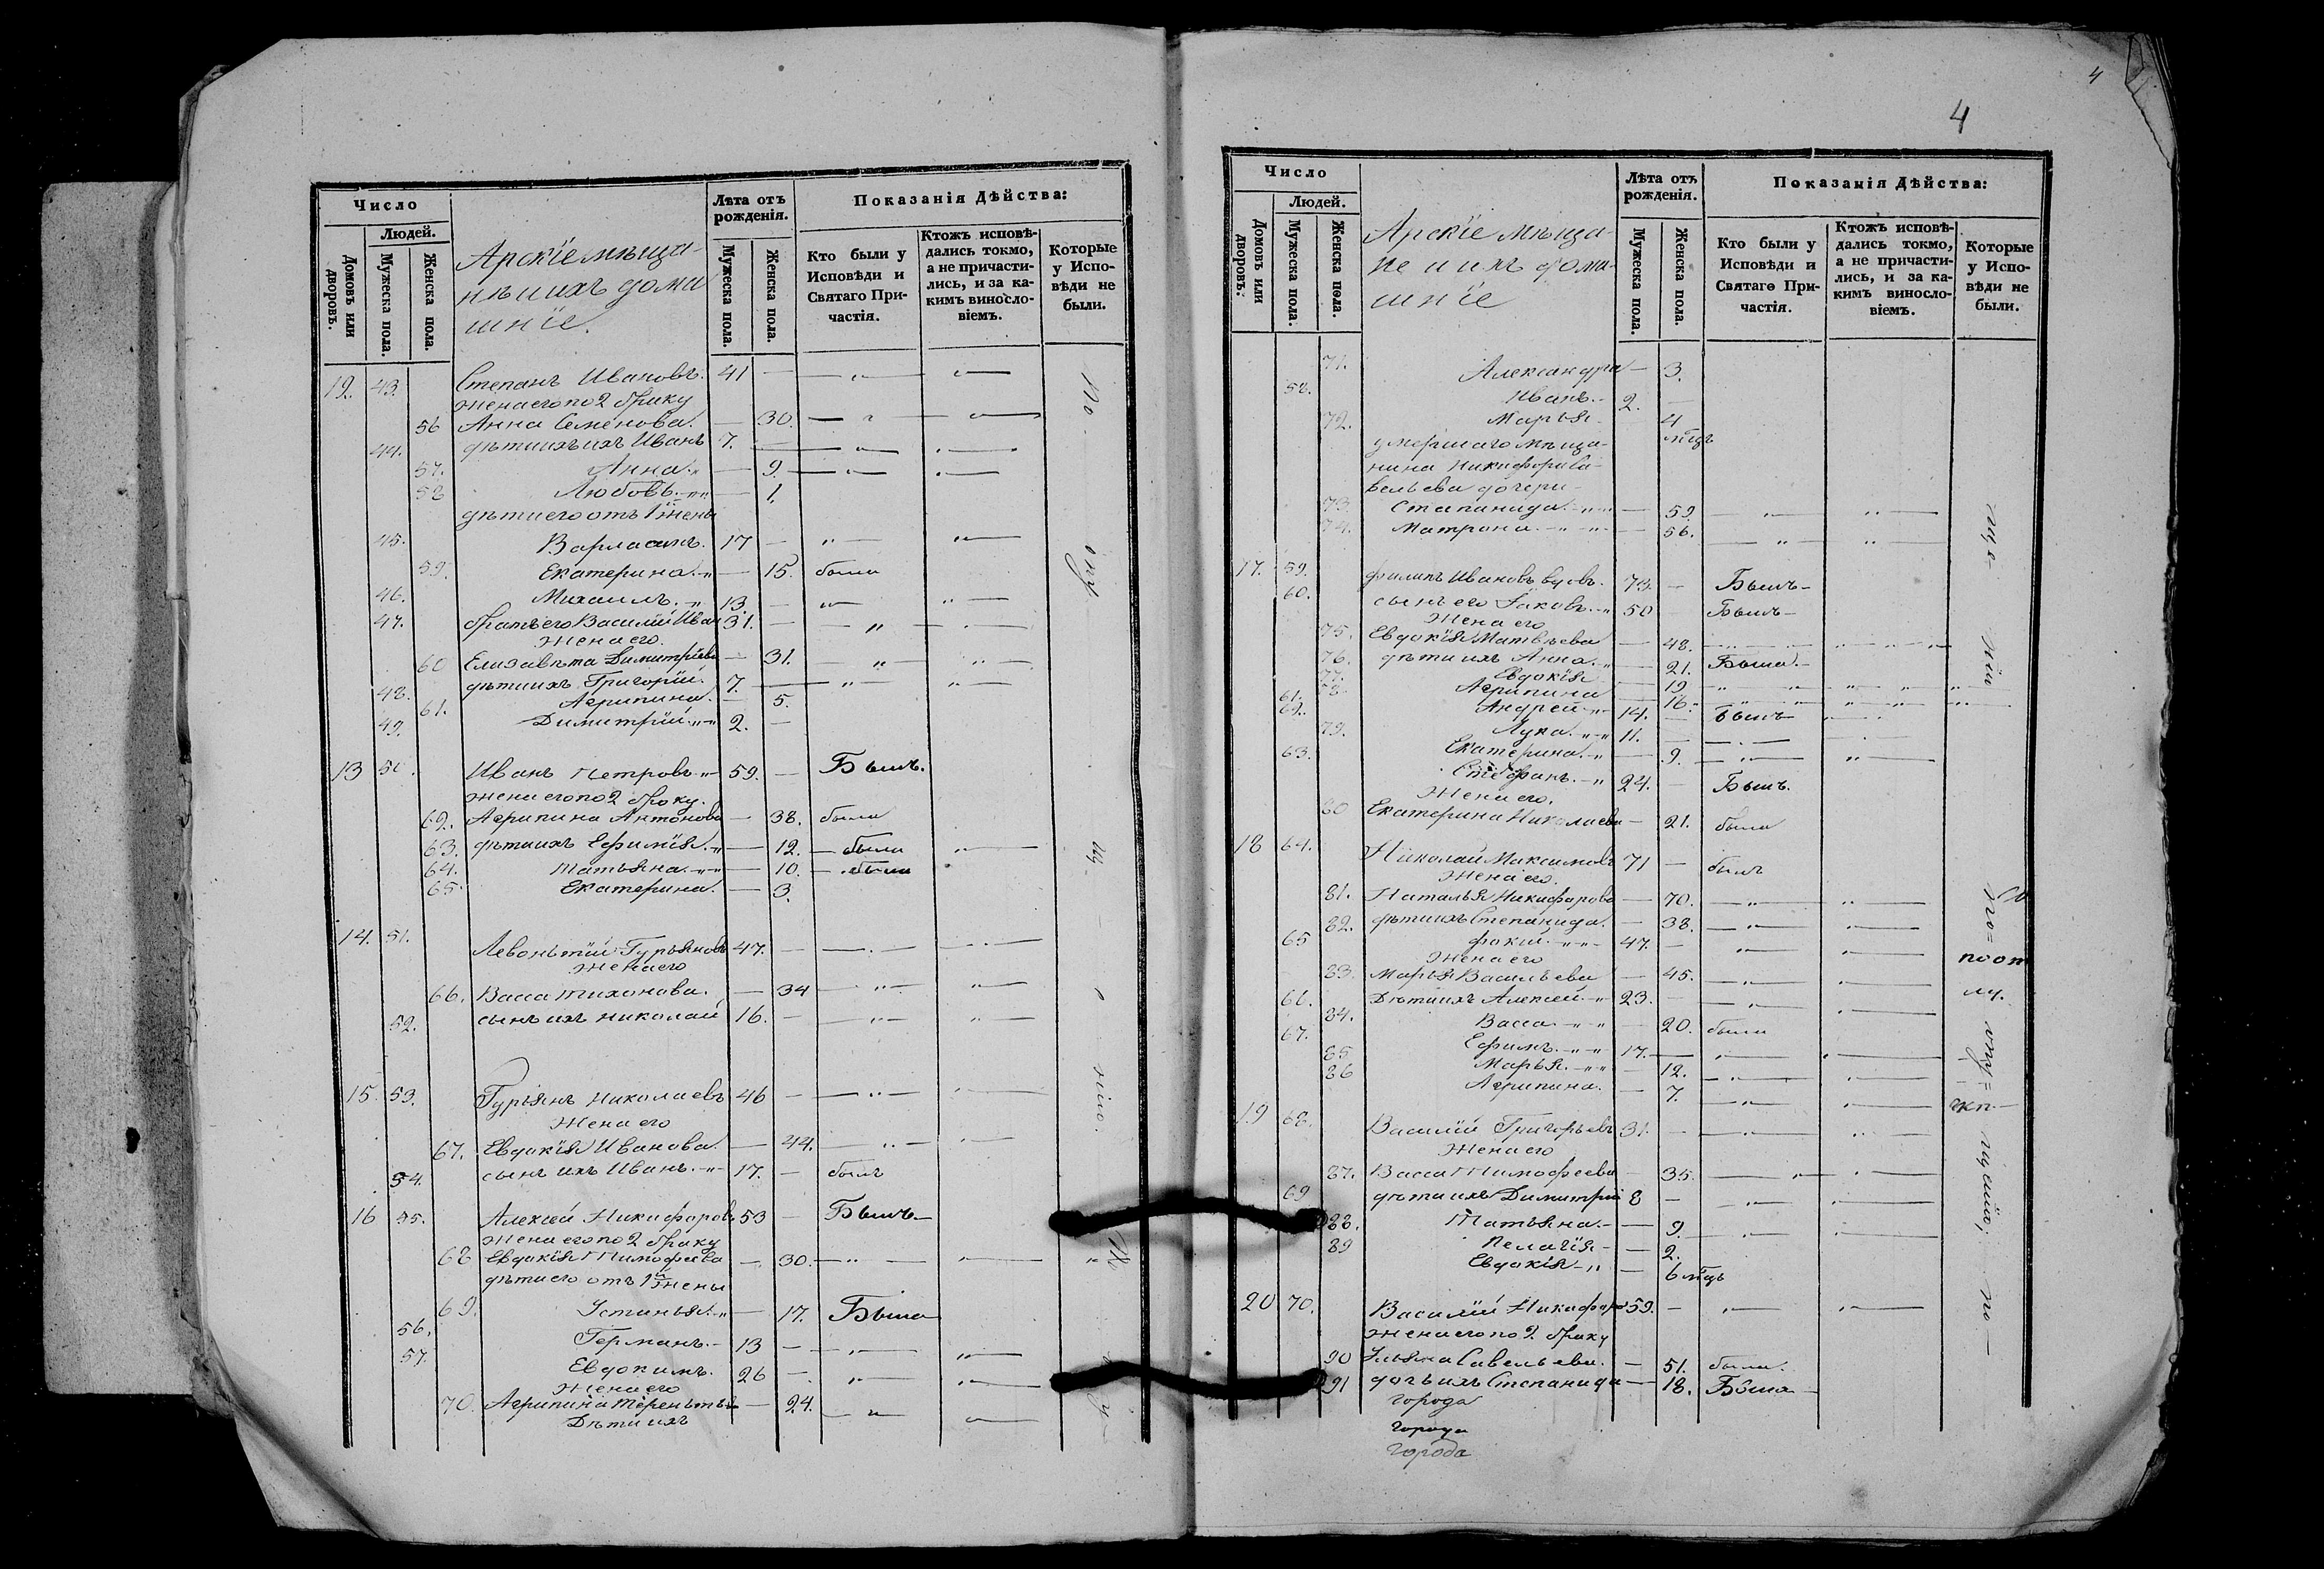 Число
Людей.
Домовъ или дворовъ.
Мужеска пола.
Женска пола.
Арскіе мѣща-
нѣ и ихъ дома
шніе.
Лѣта отъ рожденія.
Мужеска пола.
Женска пола.
Показанія Дѣйства:
Кто были у Исповѣди и Святаго Причастія.
Ктожъ исповѣдались токмо, а не причастились, и за какимъ винословіемъ.
Которые у Исповѣди не были.
12. 43. Степанъ Ивановъ. 41 —
жена его по 2 браку
56 Анна Семенова. — 30.
44. дѣти ихъ Иванъ 7. —
57. Анна — 9.
58 Любовь — 1.
дѣти его отъ 1й жены
45. Варлаамъ. 17 —
59. Екатерина — 15. была
46. Михаилъ 13. —
47. братъ его Василій Иван 31. —
жена его.
60 Елизавѣта Димитріева — 31.
48. дѣти ихъ Григорій. 7. —
61. Агрипина. — 5.
49. Димитрій 2. —
13 50. Иванъ Петровъ 59. — Былъ.
жена его по 2 браку.
62. Агрипина Антонова — 38. была
63. дѣти ихъ Ефимія — 12. — была
64. Татьяна — 10. — была
65. Екатерина. — 3.
14. 51. Левоньтій Гурьяновъ 47. —
жена его
66. Васса Тихонова. — 34
52. сынъ ихъ Николай 16. —
15. 53. Гурьянъ Николаевъ 46 —
жена его
67. Евдокія Иванова. — 44.
54. сынъ ихъ Иванъ 17. — былъ
16 55. Алексей Никифоровъ 53 — Былъ
жена его по 2 браку
68 Евдокія Тимофеева — 30.
дѣти его отъ 1й жены
69. Устинья — 17. Была
56. Германъ 13 —
57. Евдокимъ. 26 —
жена его
70. Агрипина Теренть — 24.
Дѣти ихъ
4
4
Число
Людей.
Домовъ или дворовъ.
Мужеска пола.
Женска пола.
Арскіе мѣща-
не и ихъ дома-
шніе
Лѣта отъ рожденія.
Мужеска пола.
Женска пола.
Показанія Дѣйства:
Кто были у Исповѣди и Святаго Причастія.
Ктожъ исповѣдались токмо, а не причастились, и за какимъ винословіемъ.
Которые у Исповѣди не были.
71. Александра — 3.
58. Иванъ 2. —
72. Марья 4 мѣцъ
умершаго мѣща-
нина Никифора Са-
вельева дочери
73. Степанида — 59.
74. Матрона — 56.
17. 59. Филипъ Ивановъ вдовъ. 73. — Былъ
60. сынъ его Іаковъ 50 Былъ
жена его
75. Евдокія Матвѣева — 48.
76. дѣти ихъ Анна — 21. Была
77. Евдокія — 19
78. Агрипина — 16.
61. Андрей 14. — Былъ
62. Лука 11. —
79. Екатерина — 9.
63. Стефанъ 24. — Былъ.
жена его.
80 Екатерина Николаева — 21. была
18 64. Николай Максимовъ 71 — былъ
жена его.
81. Наталья Никифорова — 70.
82. дѣти ихъ Степанида. — 38.
65 Фокій 47. —
жена его
83. Марья Васильева — 45.
66. Дѣти ихъ Алексей 23. —
84. Васса — 20. была
67. Ефимъ 17. —
85 Марья — 12.
86 Агрипина. — 7.
19 68. Василій Григорьевъ 31. —
жена его
87. Васса Тимофеева — 35.
69 дѣти ихъ Димитрій 8 —
88. Татьяна — 9.
89 Пелагія — 2.
Евдокія — 6 мѣцъ
20 70. Василій Никифоро 59. —
жена его по 2 браку
90 Ульяна Савельева. — 51. была.
91 дочь ихъ Степанида — 18. Была
города
города
города